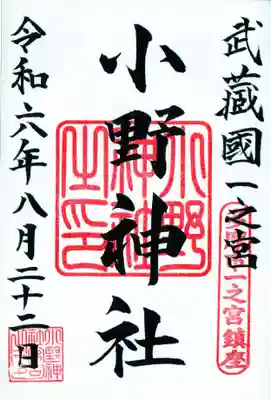 武藏國一之宮
一之宮鎮座
小野神社
小野神社之印
令和六年八月二十二日